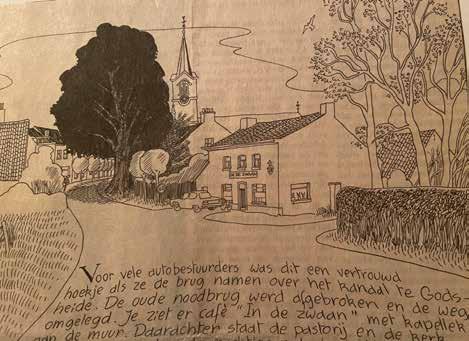 IN DE ZWAAN
Voor vele autobestuurders was dit een vertrouwd
hoekje als ze de brug namen over het kanaal te Gods-
heide. De oude noodbrug werd afgebroken en de weg
omgelegd. Je ziet er café "In de zwaan" met kapellek
aan de muur. Daarachter staat de pastorij en de kerk